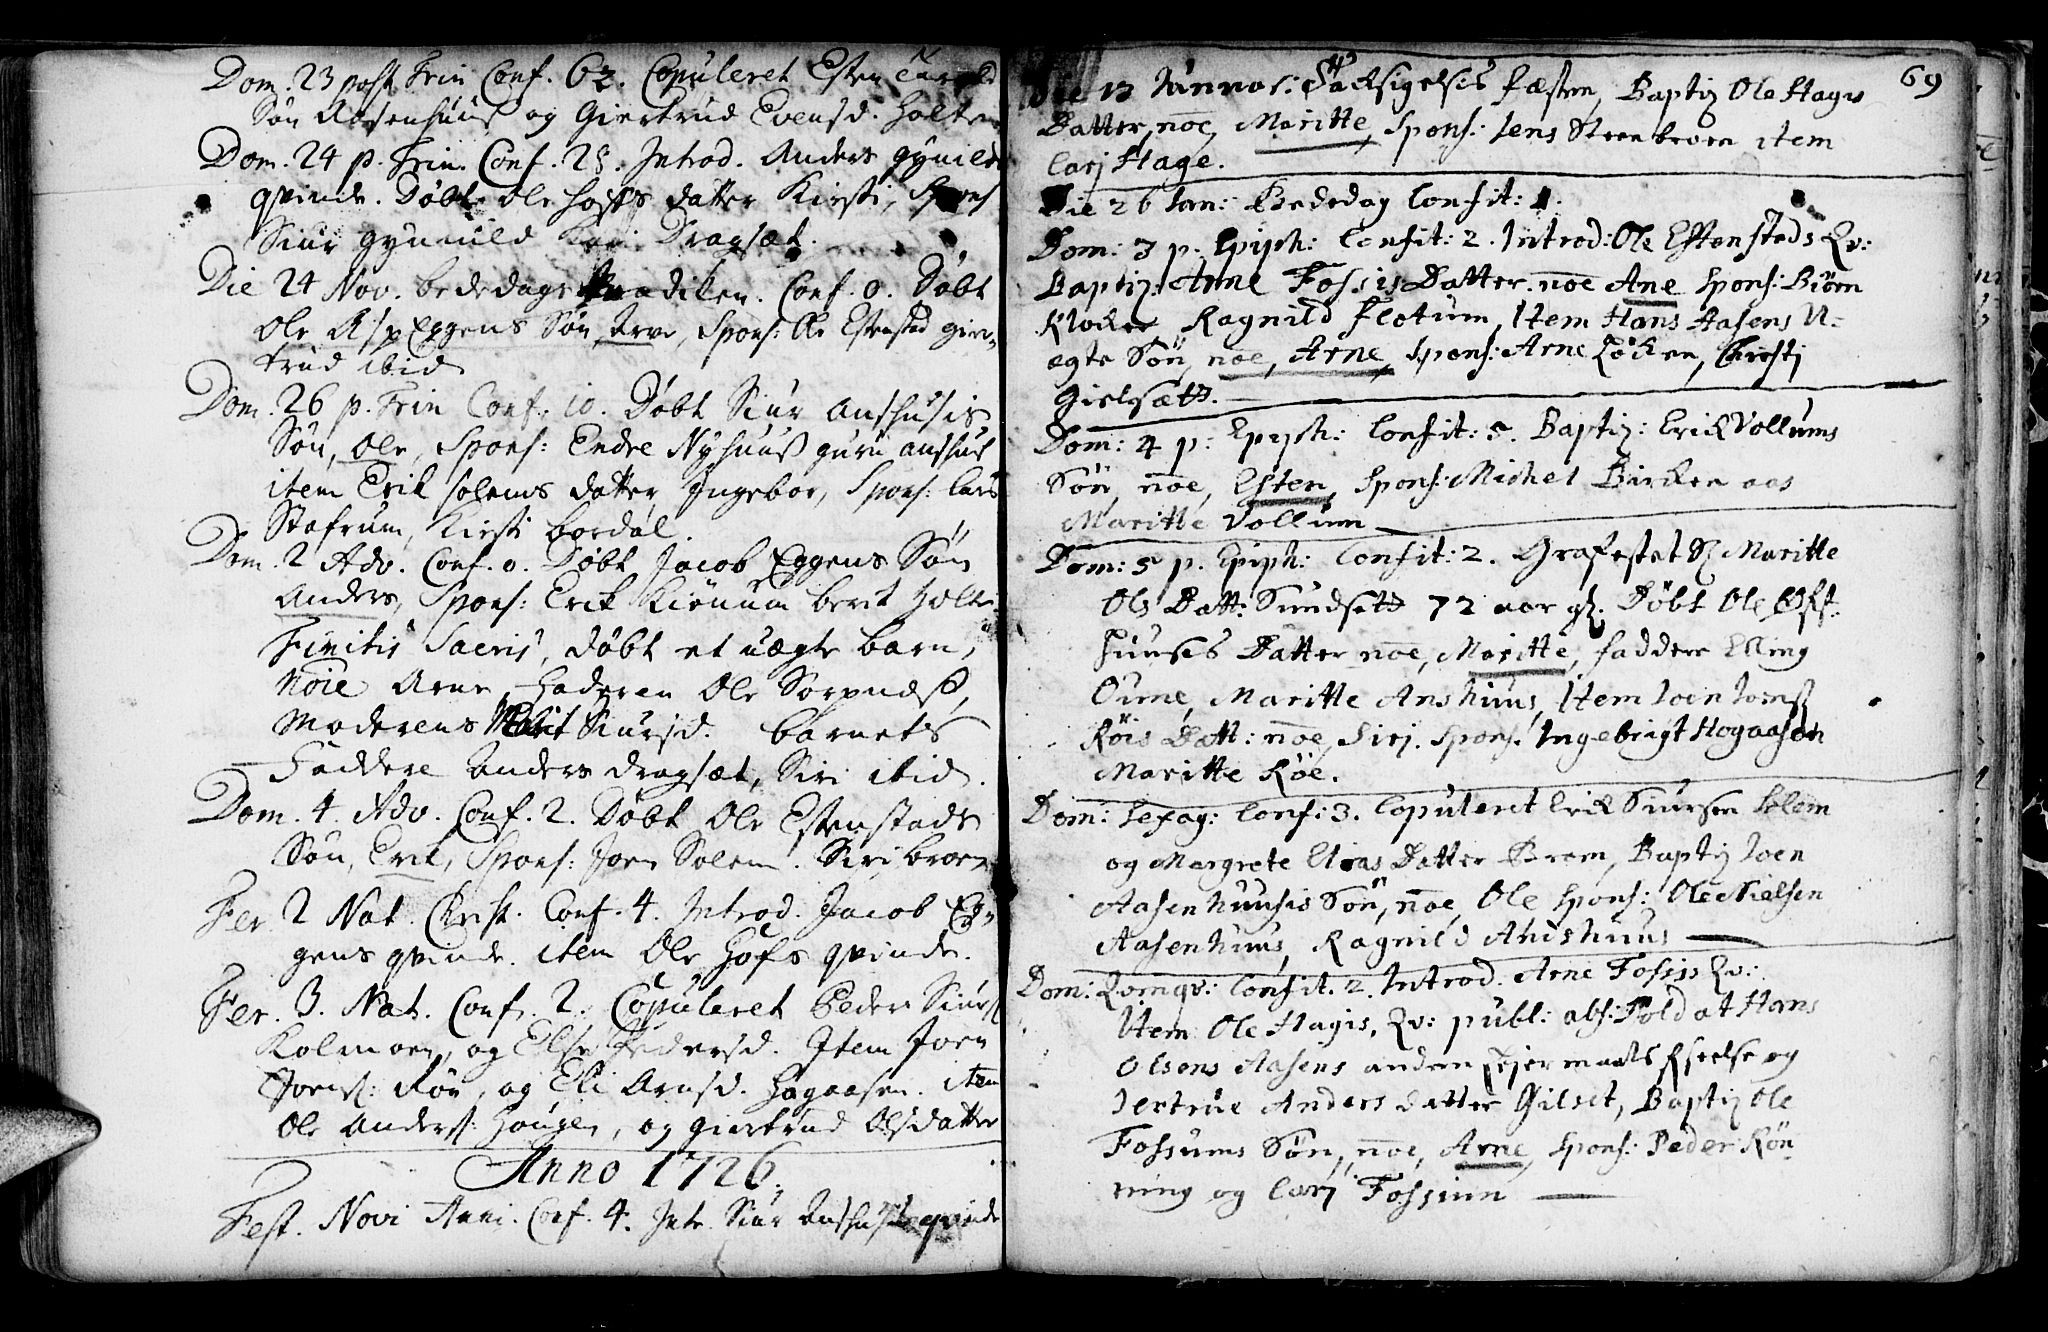 Dom. 23 post Trin Conf. 62. Copuleret Esten
Søn Aasenhuus og Giertrud Evensd. Holte
Dom. 24 p. Trin. Conf. 28. Introd. Anders gynild
qvinde. Døbt ole hofs datter Kirsti, Spons
Siur gynnild Kari Dragsæt.
Die 24 Nov. bededags Conf. 0. Døbt
Ole Eggens Søn, Arve, Spons: Ole Estensted gier-
trud ibid
Dom. 26 p. Trin Conf. 10. Døbt Siur Anshusis
Søn, Ole, Spons: Endre Nyhuus guru anshus
item Erik solems datter Ingebor, Spons: Lars
Stafrum, Kirsti bordal
Dom. 2 Adv. Conf. 0. Døbt Jacob Eggens Søn
Anders, Spons: Erik Kiönum berit Holte.
Finitis Sacris, døbt et uægte barn,
noie Arne, Faderen Ole
Moderens Siursd. barnets
Faddere Anders dragsæt, Siri ibid.
Dom. 4. Adv. Conf. 2. Døbt Ole Estenstads
Søn, Erik, Spons: Joen Solem. Siri broen
Fer 2 Nat. Christ. Conf. 4. Introd. Jacob Eg-
gens qvinde. item Ole Hofs qvinde.
Fer. 3. Nat. Conf. 2. Copuleret Peder Siurs:
Kolmoen, og Else Pedersd. Item Joen
Joens: Röe, og Eli Arnsd. Hogaasen. item
Ole Anders: Haugen, og giertrud Olsdatter
Anno 1726.
Fest. Novi Anni. Conf. 4. Intr. Siur Anshusis qvinde
69
Die 13 Januar: Tacksigelses fæsten, Baptiz Ole Hagis
Datter, noe, Maritte, Spons: Jens Steenbroen item
Carj Hage.
Die 26 Jan: Bededag Confit: 1.
Dom: 3 p. Epiph: Confit: 2. Introd: Ole Estensteds Qv:
Baptiz: Arne Fossis Datter. noe Ane Spons: Biørn
Klocker Ragnild Flotum, Item Hans Aasens U-
egte Søn, noe, Arne, Spons: Arne Løcken, Christj
Gielsætt.
Dom: 4 p: Epiph: Confit: 5. Baptiz: Erick Vollums
Søn, noe, Esten, Spons: Michel Bircken aas
Maritte Vollum
Dom: 5 p. Epiph: Confit: 2. Grafestet Sl Maritte
Ols Datt: Sundsett 72 aar gl. Døbt Ole Øst-
huuses Datter noe, Maritte, faddere Elling
Oune, Maritte Anshuus, Item Joen Joens:
Röis Datt: noe, Sirj. Spons: Ingebrigt Hogaasen
Maritte Röe.
Dom: Sexag: Conf: 3. Copuleret Erick Siursen Solem
og Margrete Elias Datter Broen, Baptiz Joen
Aasenhuusis Søn, noe, Ole Spons: Ole Nielsen
Aasenhuus, Ragnild Andshuus
Dom: Qvinqv: Confit. 2. Introd. Arne Fossis Qv:
Item Ole Hagis, Qv: publ: abs: Fold at Hans
Olsens Aasens anden Leyermaals forseelse og
Jertrue Anders datter Gilset, Baptiz Ole
Fossums Søn, noe, Arne, Spons: Peder Røn
ning og Carj Fossum